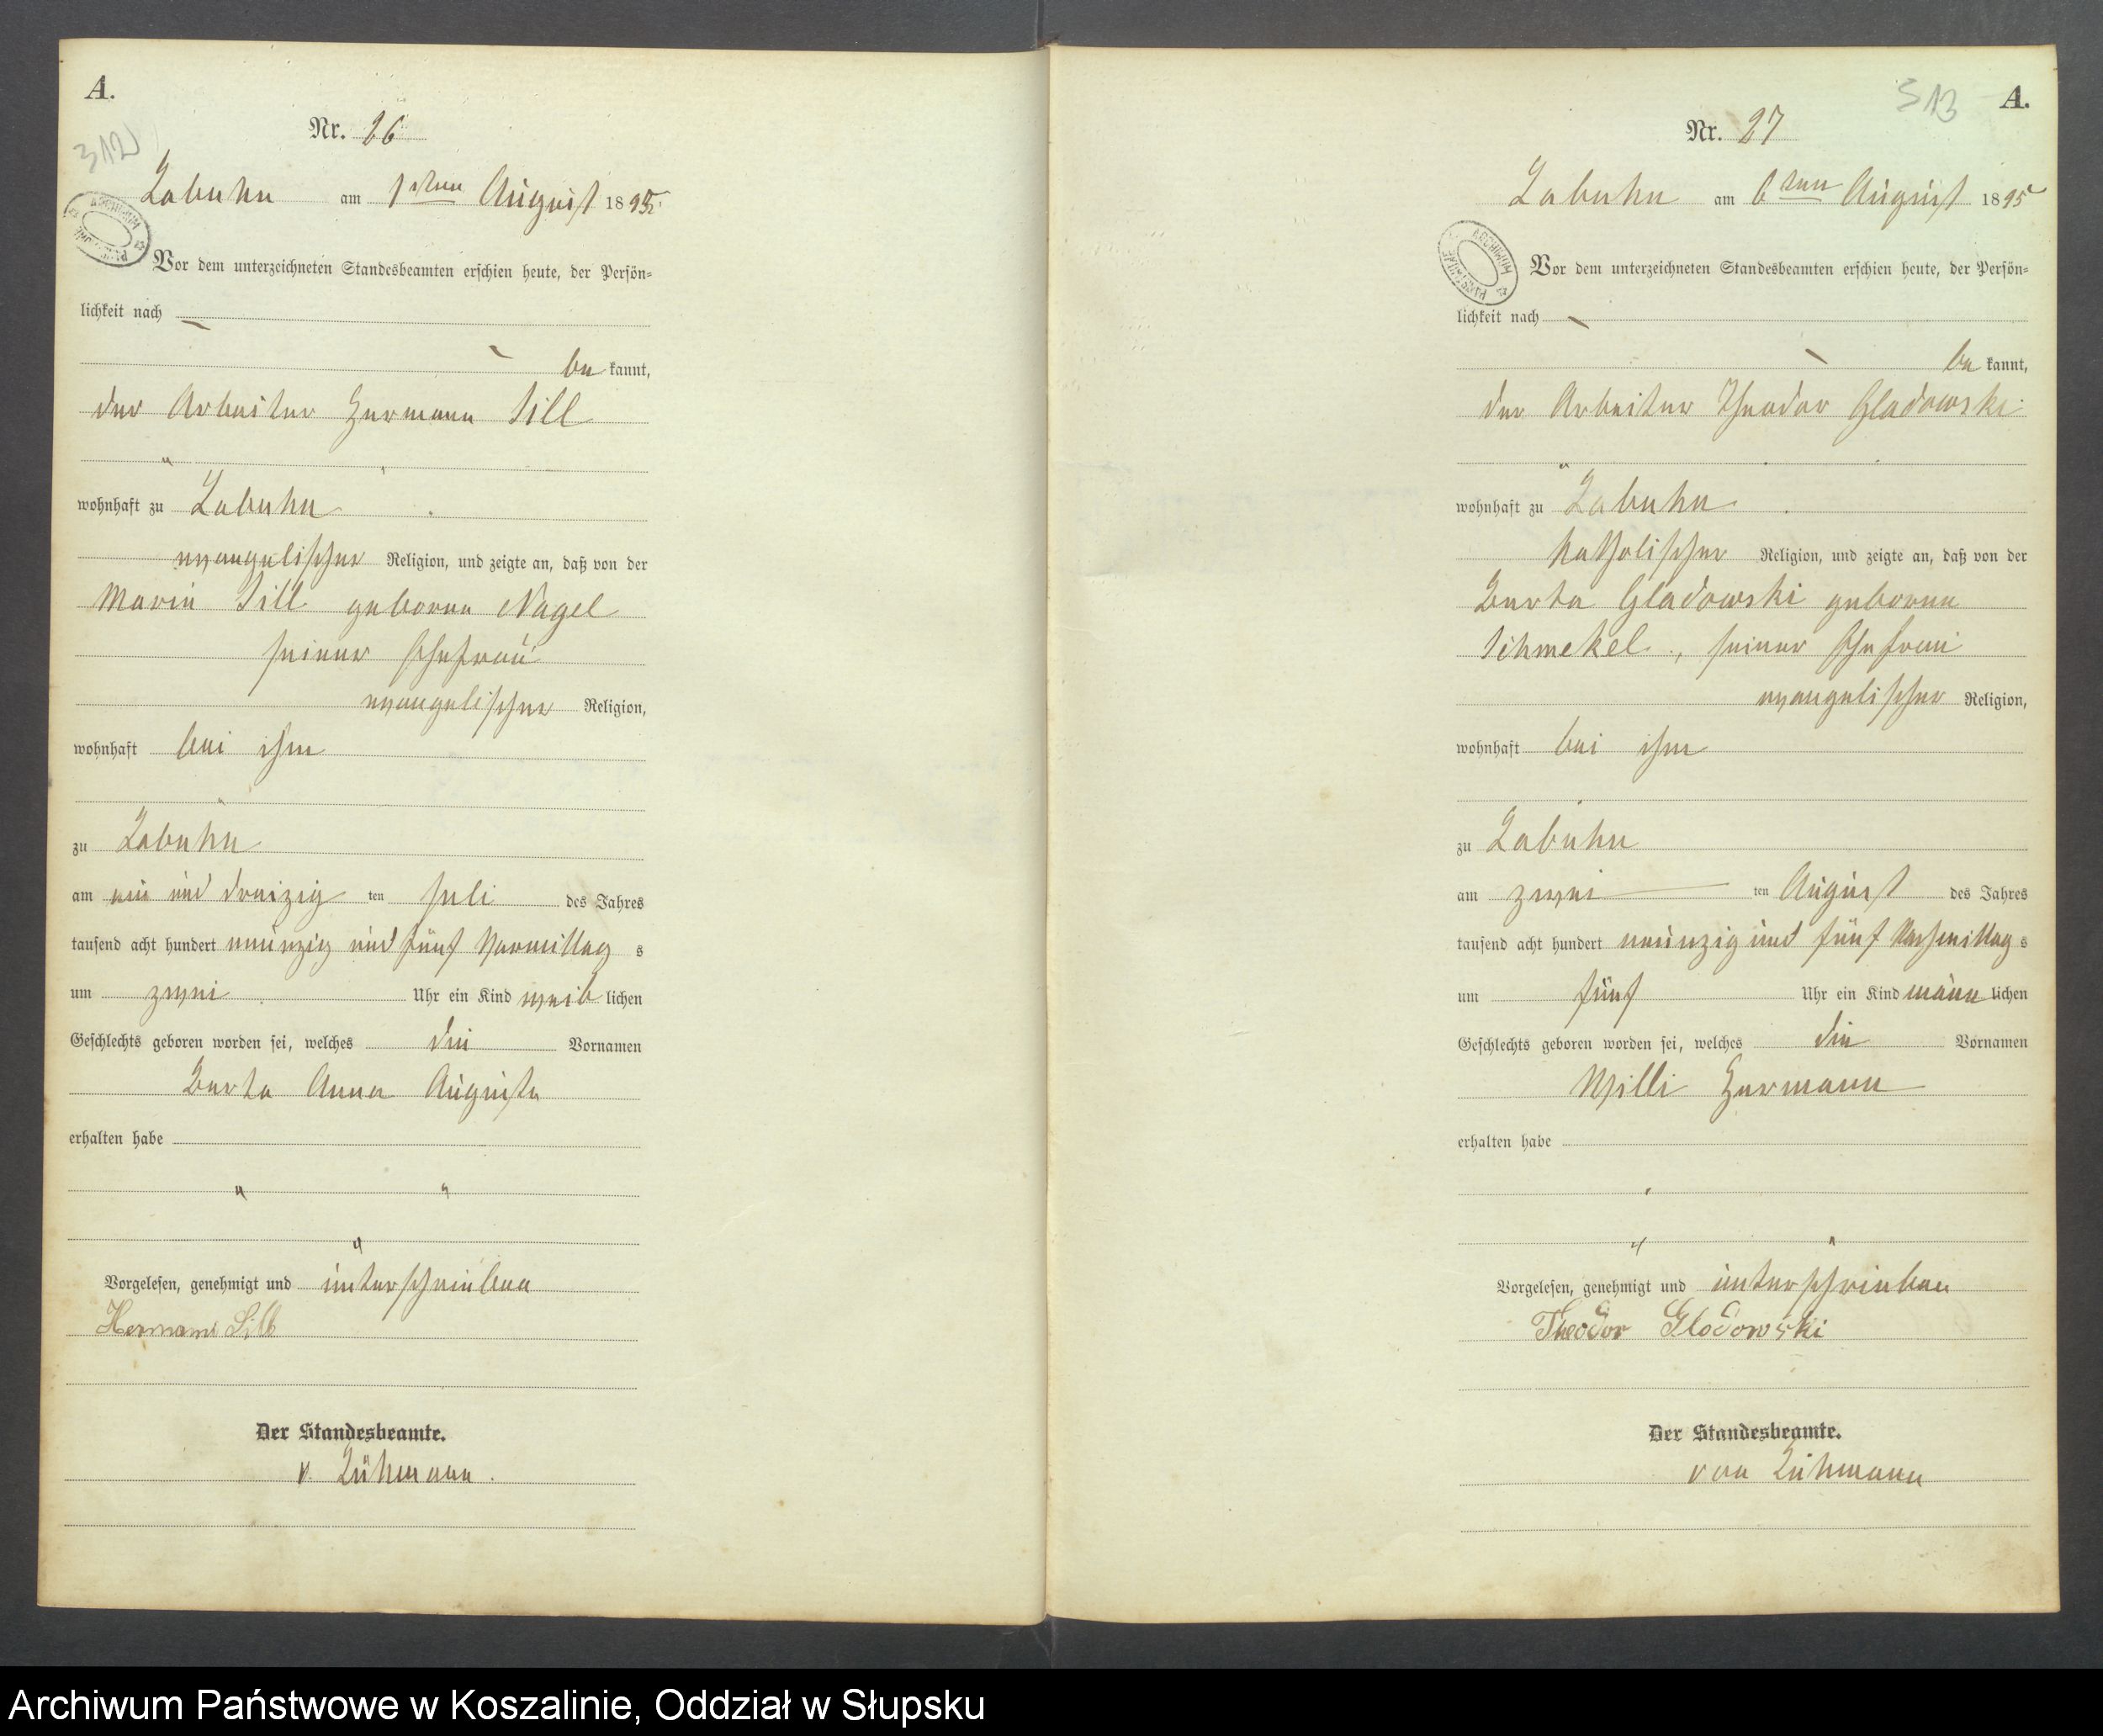 A.
312
Nr. 26
Labuhn am 1sten August 1895
Vor dem unterzeichneten Standesbeamten erschien heute, der Persön-
lichkeit nach
be kannt,
der Arbeiter Hermann Sill
wohnhaft zu Labuhn
evangelischer Religion, und zeigte an, daß von der
Marie Sill geborne Nagel
seiner Ehefrau
evangelischer Religion,
wohnhaft bei ihm
zu Labuhn
am ein und dreizig ten Juli des Jahres
tausend acht hundert neunzig und fünf Vormittag s
um zwei Uhr ein Kind weib lichen
Geschlechts geboren worden sei, welches die Vornamen
Berta Anna Auguste
erhalten habe
Vorgelesen, genehmigt und unterschrieben
Hermann Sill
Der Standesbeamte.
v. Lühmann.
313 A.
Nr. 27
Labuhn am 6ten August 1895
Vor dem unterzeichneten Standesbeamten erschien heute, der Persön-
lichkeit nach
be kannt,
der Arbeiter Theodor Gladowski
wohnhaft zu Labuhn
katholischer Religion, und zeigte an, daß von der
Berta Gladowski geborne
Schmekel, seiner Ehefrau
evangelischer Religion,
wohnhaft bei ihm
zu Labuhn
am zwei ten August des Jahres
tausend acht hundert neunzig und fünf Nachmittag s
um fünf Uhr ein Kind männ lichen
Geschlechts geboren worden sei, welches die Vornamen
Willi Hermann
erhalten habe
Vorgelesen, genehmigt und unterschrieben
Theodor Glodowski
Der Standesbeamte.
von Lühmann
Archiwum Państwowe w Koszalinie, Oddział w Słupsku